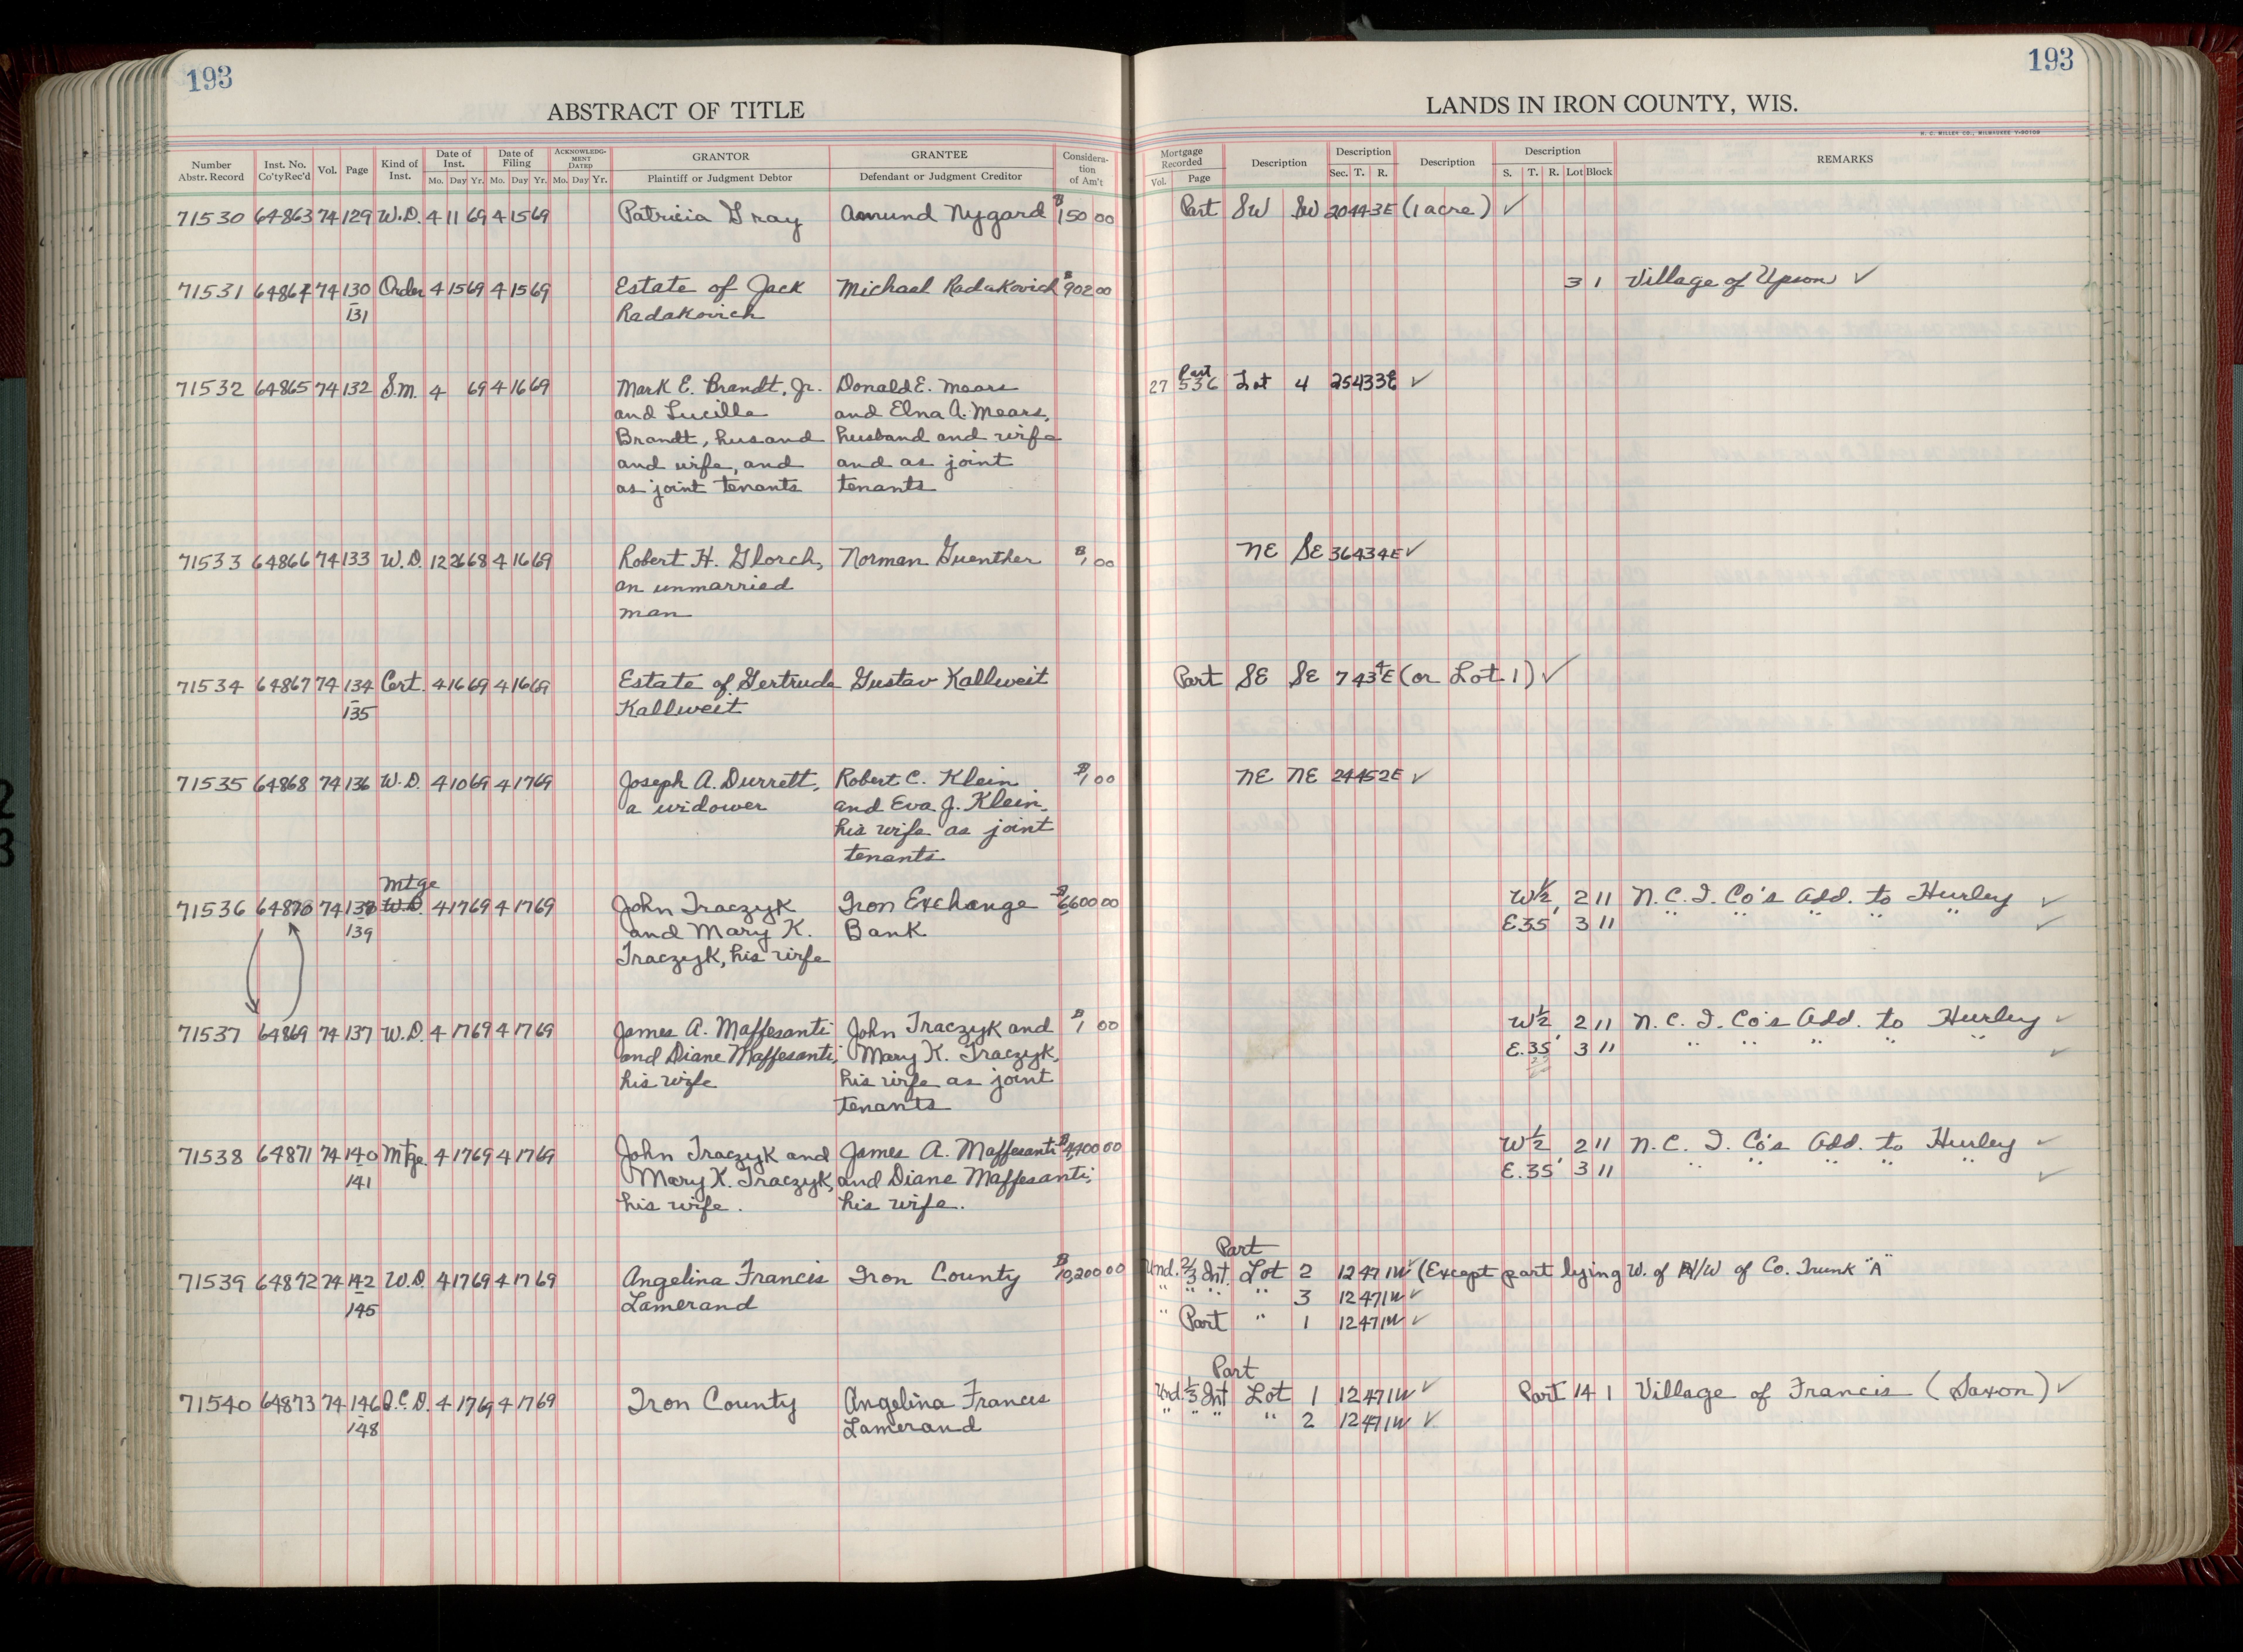 193
ABSTRACT OF TITLE
Number Abstr. Record Inst. No. Co'ty Rec'd Vol. Page Kind of Inst. Date of Inst. Mo. Day Yr. Date of Filing Mo. Day Yr. ACKNOWLEDGMENT DATED Mo. Day Yr. GRANTOR Plaintiff or Judgment Debtor GRANTEE Defendant or Judgment Creditor Consideration of Am't
71530 64863 74 129 W.D. 4 11 69 4 15 69 Patricia Gray Amund Nygard $150 00
71531 64864 74 130 Order 4 15 69 4 15 69 Estate of Jack Michael Radakovich $902 00
131 Radakovich
71532 64865 74 132 S.M. 4 69 4 16 69 Mark E. Brandt, Jr. Donald E. Mears
and Lucille and Elna A. Mears,
Brandt, husand husband and wife
and wife, and and as joint
as joint tenants tenants
71533 64866 74 133 W.D. 12 26 68 4 16 69 Robert H. Glorch, Norman Guenther $1 00
an unmarried
man
71534 64867 74 134 Cert. 4 16 69 4 16 69 Estate of Gertrude Gustav Kallweit
135 Kallweit
71535 64868 74 136 W.D. 4 10 69 4 17 69 Joseph A. Durrett, Robert C. Klein $1 00
a widower and Eva J. Klein,
his wife as joint
tenants
Mtge
71536 64870 74 138 W.D. 4 17 69 4 17 69 John Traczyk Iron Exchange $6600 00
139 and Mary K. Bank
Traczyk, his wife
71537 64869 74 137 W.D. 4 17 69 4 17 69 James A. Maffesanti John Traczyk and $1 00
and Diane Maffesanti, Mary K. Traczyk,
his wife his wife as joint
tenants
71538 64871 74 140 Mtge. 4 17 69 4 17 69 John Traczyk and James A. Maffesanti $4400 00
141 Mary K. Traczyk, and Diane Maffesanti,
his wife. his wife.
71539 64872 74 142 W.D. 4 17 69 4 17 69 Angelina Francis Iron County $10,200 00
145 Lamerand
71540 64873 74 146 Q.C.D. 4 17 69 4 17 69 Iron County Angelina Francis
148 Lamerand
193
LANDS IN IRON COUNTY, WIS.
H. C. MILLER CO., MILWAUKEE
Mortgage Recorded Vol. Page Description Description Sec. T. R. Description Description S. T. R. Lot Block REMARKS
Part SW SW 20 44 3E (1 acre) ✓
3 1 Village of Upson ✓
Part
27 536 Lot 4 25 43 3E ✓
NE SE 36 43 4E ✓
Part SE SE 7 43 4E (or Lot 1) ✓
NE NE 24 45 2E ✓
W½ 2 11 N.C.I. Co's Add. to Hurley ✓
E 35' 3 11 " " " " " ✓
W½ 2 11 N.C.I. Co's Add. to Hurley ✓
E.35' 3 11 " " " " " ✓
W½ 2 11 N.C.I. Co's Add. to Hurley ✓
E.35' 3 11 " " " " " ✓
Part
Und. 2/3 Int. Lot 2 12 47 1W ✓ (Except part lying W. of R/W of Co. Trunk "A"
" " " " 3 12 47 1W ✓
" Part " 1 12 47 1W ✓
Part
Und. 1/3 Int Lot 1 12 47 1W ✓ Part 14 1 Village of Francis (Saxon) ✓
" " " " 2 12 47 1W ✓